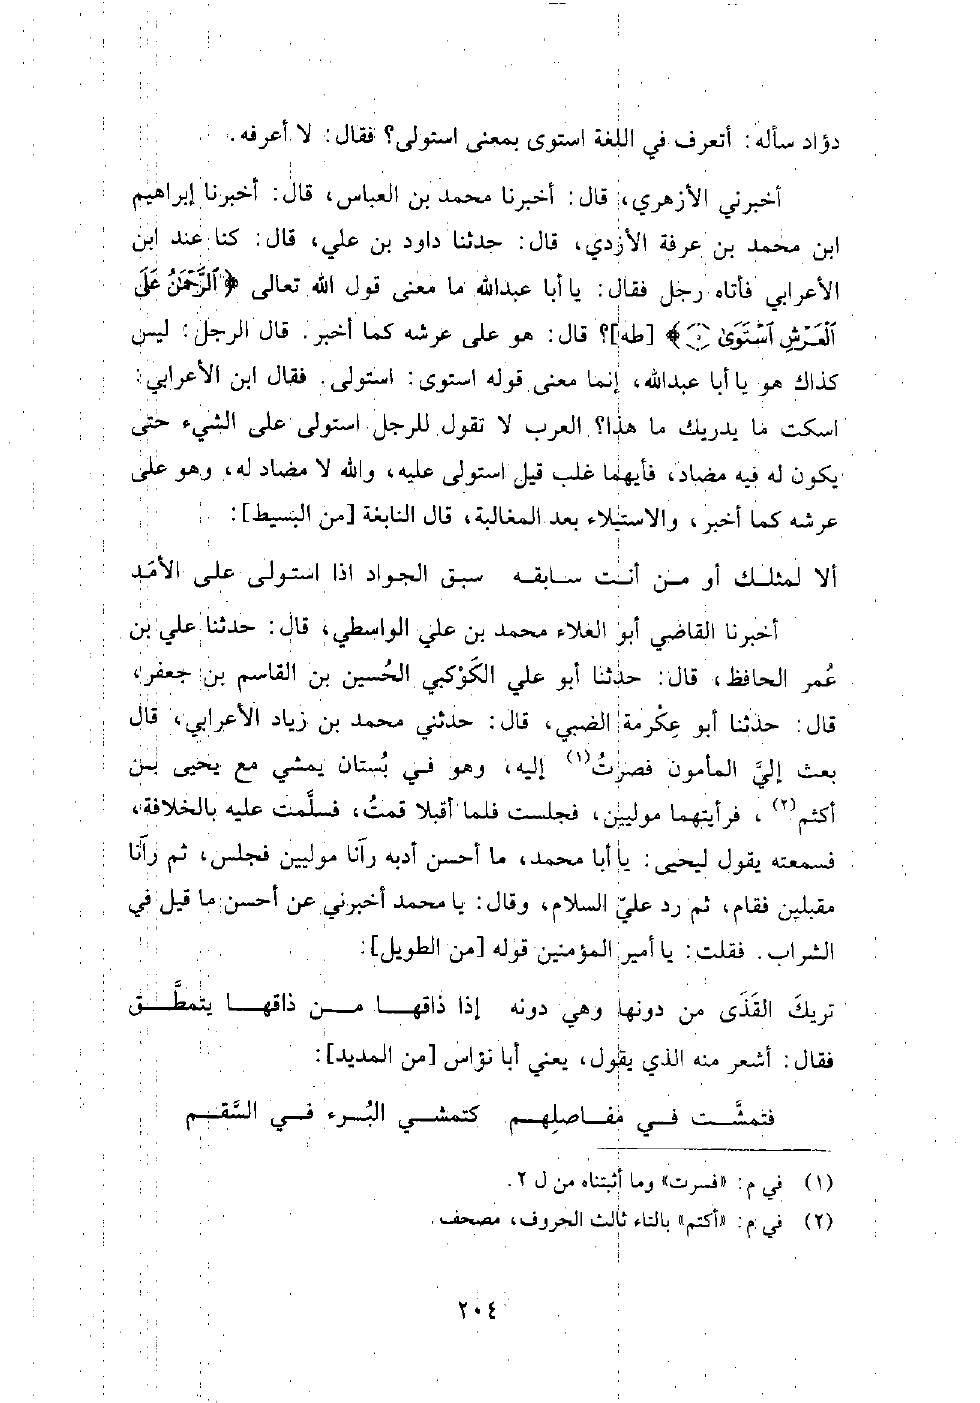 دؤاد سأله: أتعرف في اللغة استوى بمعنى استولى؟ فقال: لا أعرفه.
أخبرني الأزهري، قال: أخبرنا محمد بن العباس، قال: أخبرنا إبراهيم
ابن محمد بن عرفة الأزدي، قال: حدثنا داود بن علي، قال: كنا عند ابن
الأعرابي فأتاه رجل فقال: يا أبا عبدالله ما معنى قول الله تعالى ﴿ٱلرَّحْمَٰنُ عَلَى
ٱلْعَرْشِ ٱسْتَوَىٰ ۝٥﴾ [طه]؟ قال: هو على عرشه كما أخبر. قال الرجل: ليس
كذاك هو يا أبا عبدالله، إنما معنى قوله استوى: استولى. فقال ابن الأعرابي:
اسكت ما يدريك ما هذا؟ العرب لا تقول للرجل استولى على الشيء حتى
يكون له فيه مضاد، فأيهما غلب قيل استولى عليه، والله لا مضاد له، وهو على
عرشه كما أخبر، والاستيلاء بعد المغالبة، قال النابغة [من البسيط]:
ألا لمثلك أو من أنت سابقه سبق الجواد اذا استولى على الأمَد
أخبرنا القاضي أبو العلاء محمد بن علي الواسطي، قال: حدثنا علي بن
عُمر الحافظ، قال: حدثنا أبو علي الكَوْكبي الحُسين بن القاسم بن جعفر،
قال: حدثنا أبو عِكْرمة الضبي، قال: حدثني محمد بن زياد الأعرابي، قال
بعث إليَّ المأمون فصرتُ(١) إليه، وهو في بُستان يمشي مع يحيى بن
أكثم(٢)، فرأيتهما موليين، فجلست فلما أقبلا قمتُ، فسلَّمت عليه بالخلافة،
فسمعته يقول ليحيى: يا أبا محمد، ما أحسن أدبه رآنا موليين فجلس، ثم رآنا
مقبلين فقام، ثم رد عليّ السلام، وقال: يا محمد أخبرني عن أحسن ما قيل في
الشراب. فقلت: يا أمير المؤمنين قوله [من الطويل]:
تريكَ القَذَى من دونها وهي دونه إذا ذاقها من ذاقها يتمطَّق
فقال: أشعر منه الذي يقول، يعني أبا نؤاس [من المديد]:
فتمشَّت في مفاصلِهم كتمشي البُرء في السَّقم
(١) في م: «فسرت» وما أثبتناه من ل ٢.
(٢) في م: «أكتم» بالتاء ثالث الحروف، مصحف.
٢٠٤